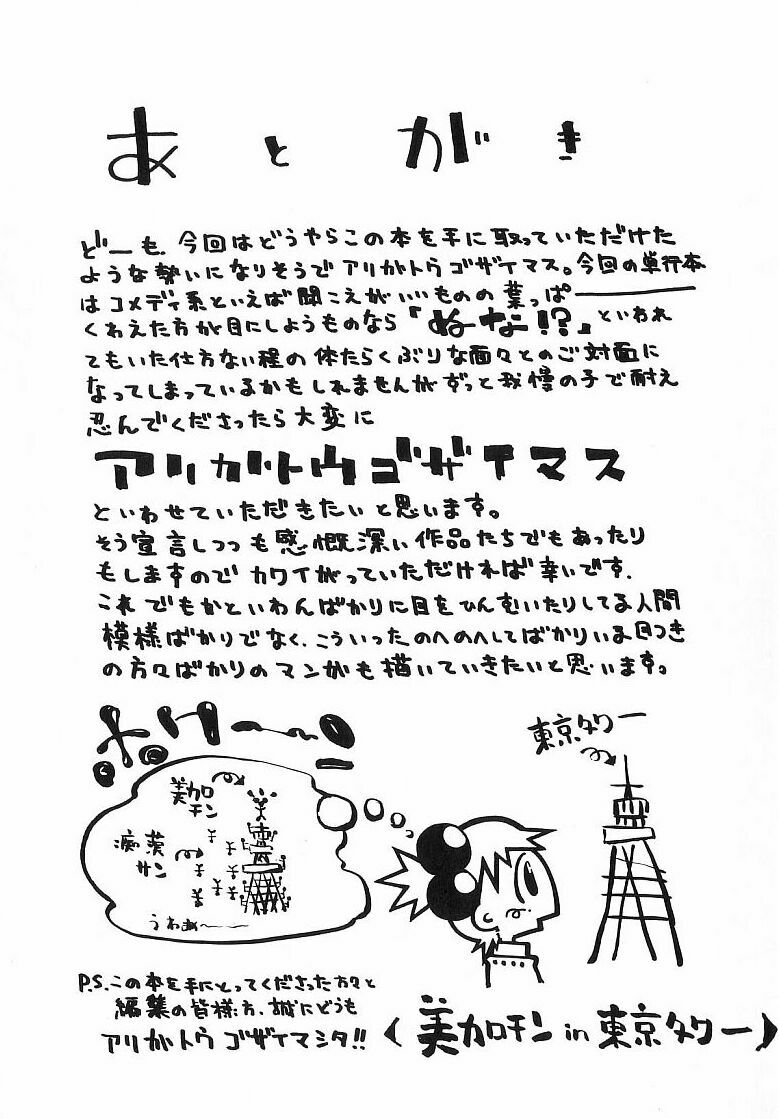 あとがき
どーも、今回はどうやらこの本を手に取っていただけた
ような勢いになりそうでアリガトウゴザイマス。今回の単行本
はコメディ系といえば聞こえがいいものの葉っぱ━━━
くわえた方が目にしようものなら『ぬな!?』といわれ
てもいた仕方ない程の体たらくぶりな面々とのご対面に
なってしまっているかもしれませんがずっと我慢の子で耐え
忍んでくださったら大変に
アリガトウゴザイマス
といわせていただきたいと思います。
そう宣言しつつも感慨深い作品たちでもあったり
もしますのでカワイがっていただければ幸いです.
これでもかといわんばかりに目をひんむいたりしてる人間
模様ばかりでなく、こういったのへのへしてばかりいる目つき
の方々ばかりのマンガも描いていきたいと思います。
ポワ〜〜ん
東京タワー
美カロ
チン
痴漢
サン
うわぁ〜〜
P.S.この本を手にとってくださった方々と
編集の皆様方、誠にどうも
アリガトウゴザイマシタ!!
〈美カロチン in 東京タワー〉